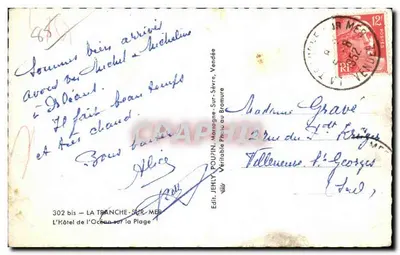 88
Sommes bien arrivés
avons vu Michel et Micheline
à Orléans.
Il fait beau temps
et très chaud.
Bons baisers
Alice
302 bis - LA TRANCHE-SUR-MER
L'Hôtel de l'Océan sur la Plage
Edit. JEHLY-POUPIN, Mortagne-Sur-Sèvre, Vendée
Véritable Photo au Bromure
LA TRANCHE SUR MER
VENDÉE
8
1952
12F
RF
Madame Grave
rue du Pdt Krüger
Villeneuve St Georges
Delcampe